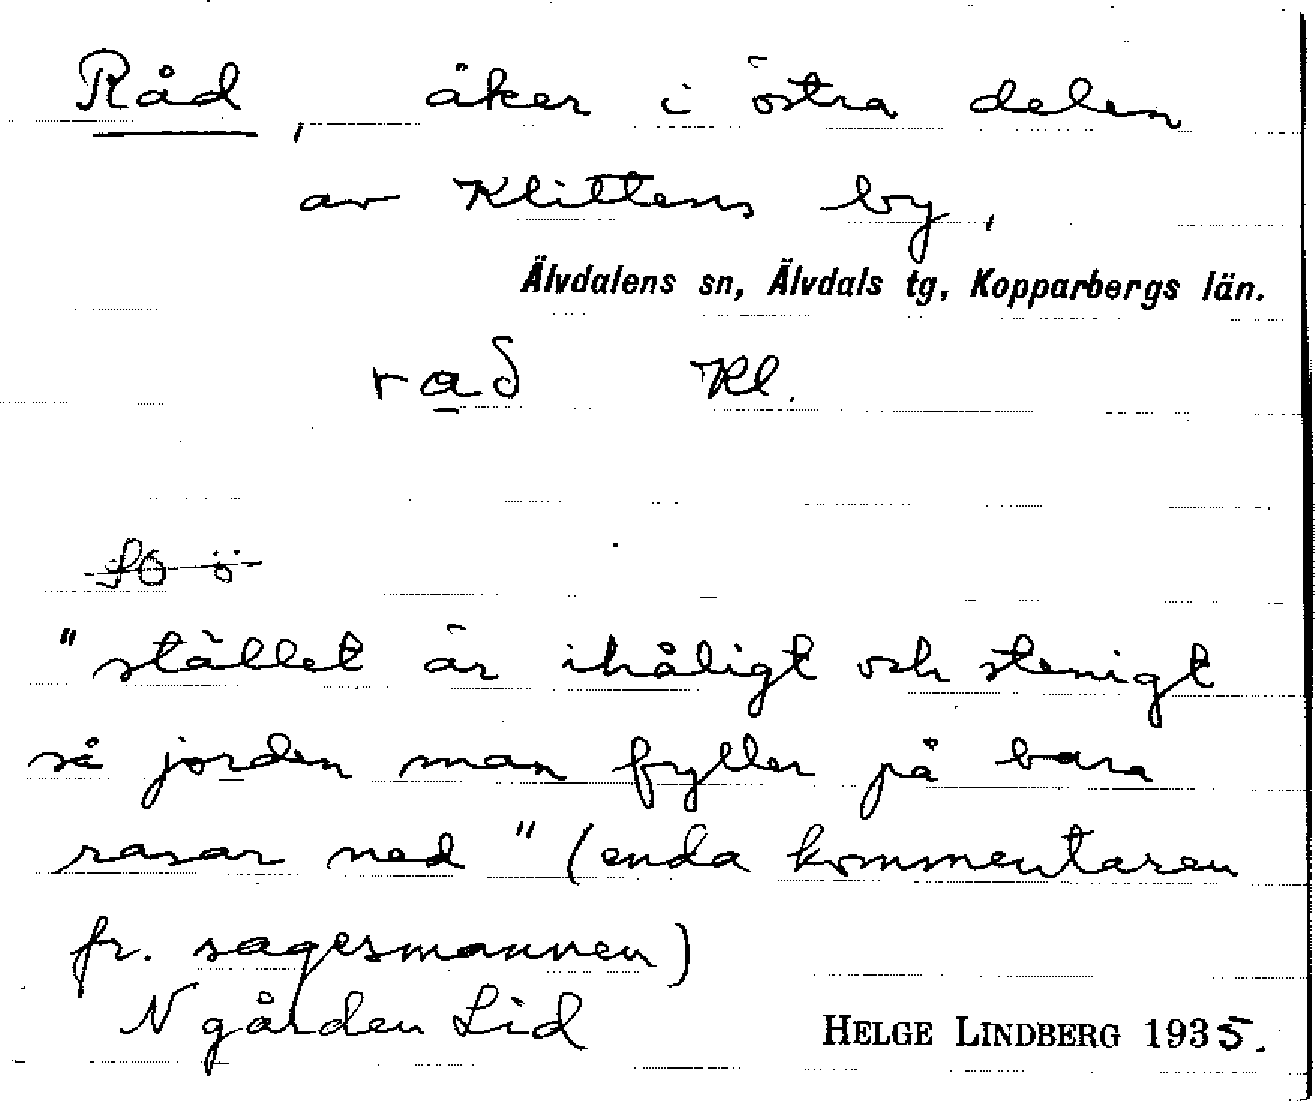 Råd, åker i östra delen
av Klittens by,
Älvdalens sn, Älvdals tg, Kopparbergs län.
raδ Kl.
"stället är ihåligt och stenigt
så jorden man fyller på bara
rasar ned" (enda kommentaren
fr. sagesmannen)
N gården Lid
HELGE LINDBERG 1935.